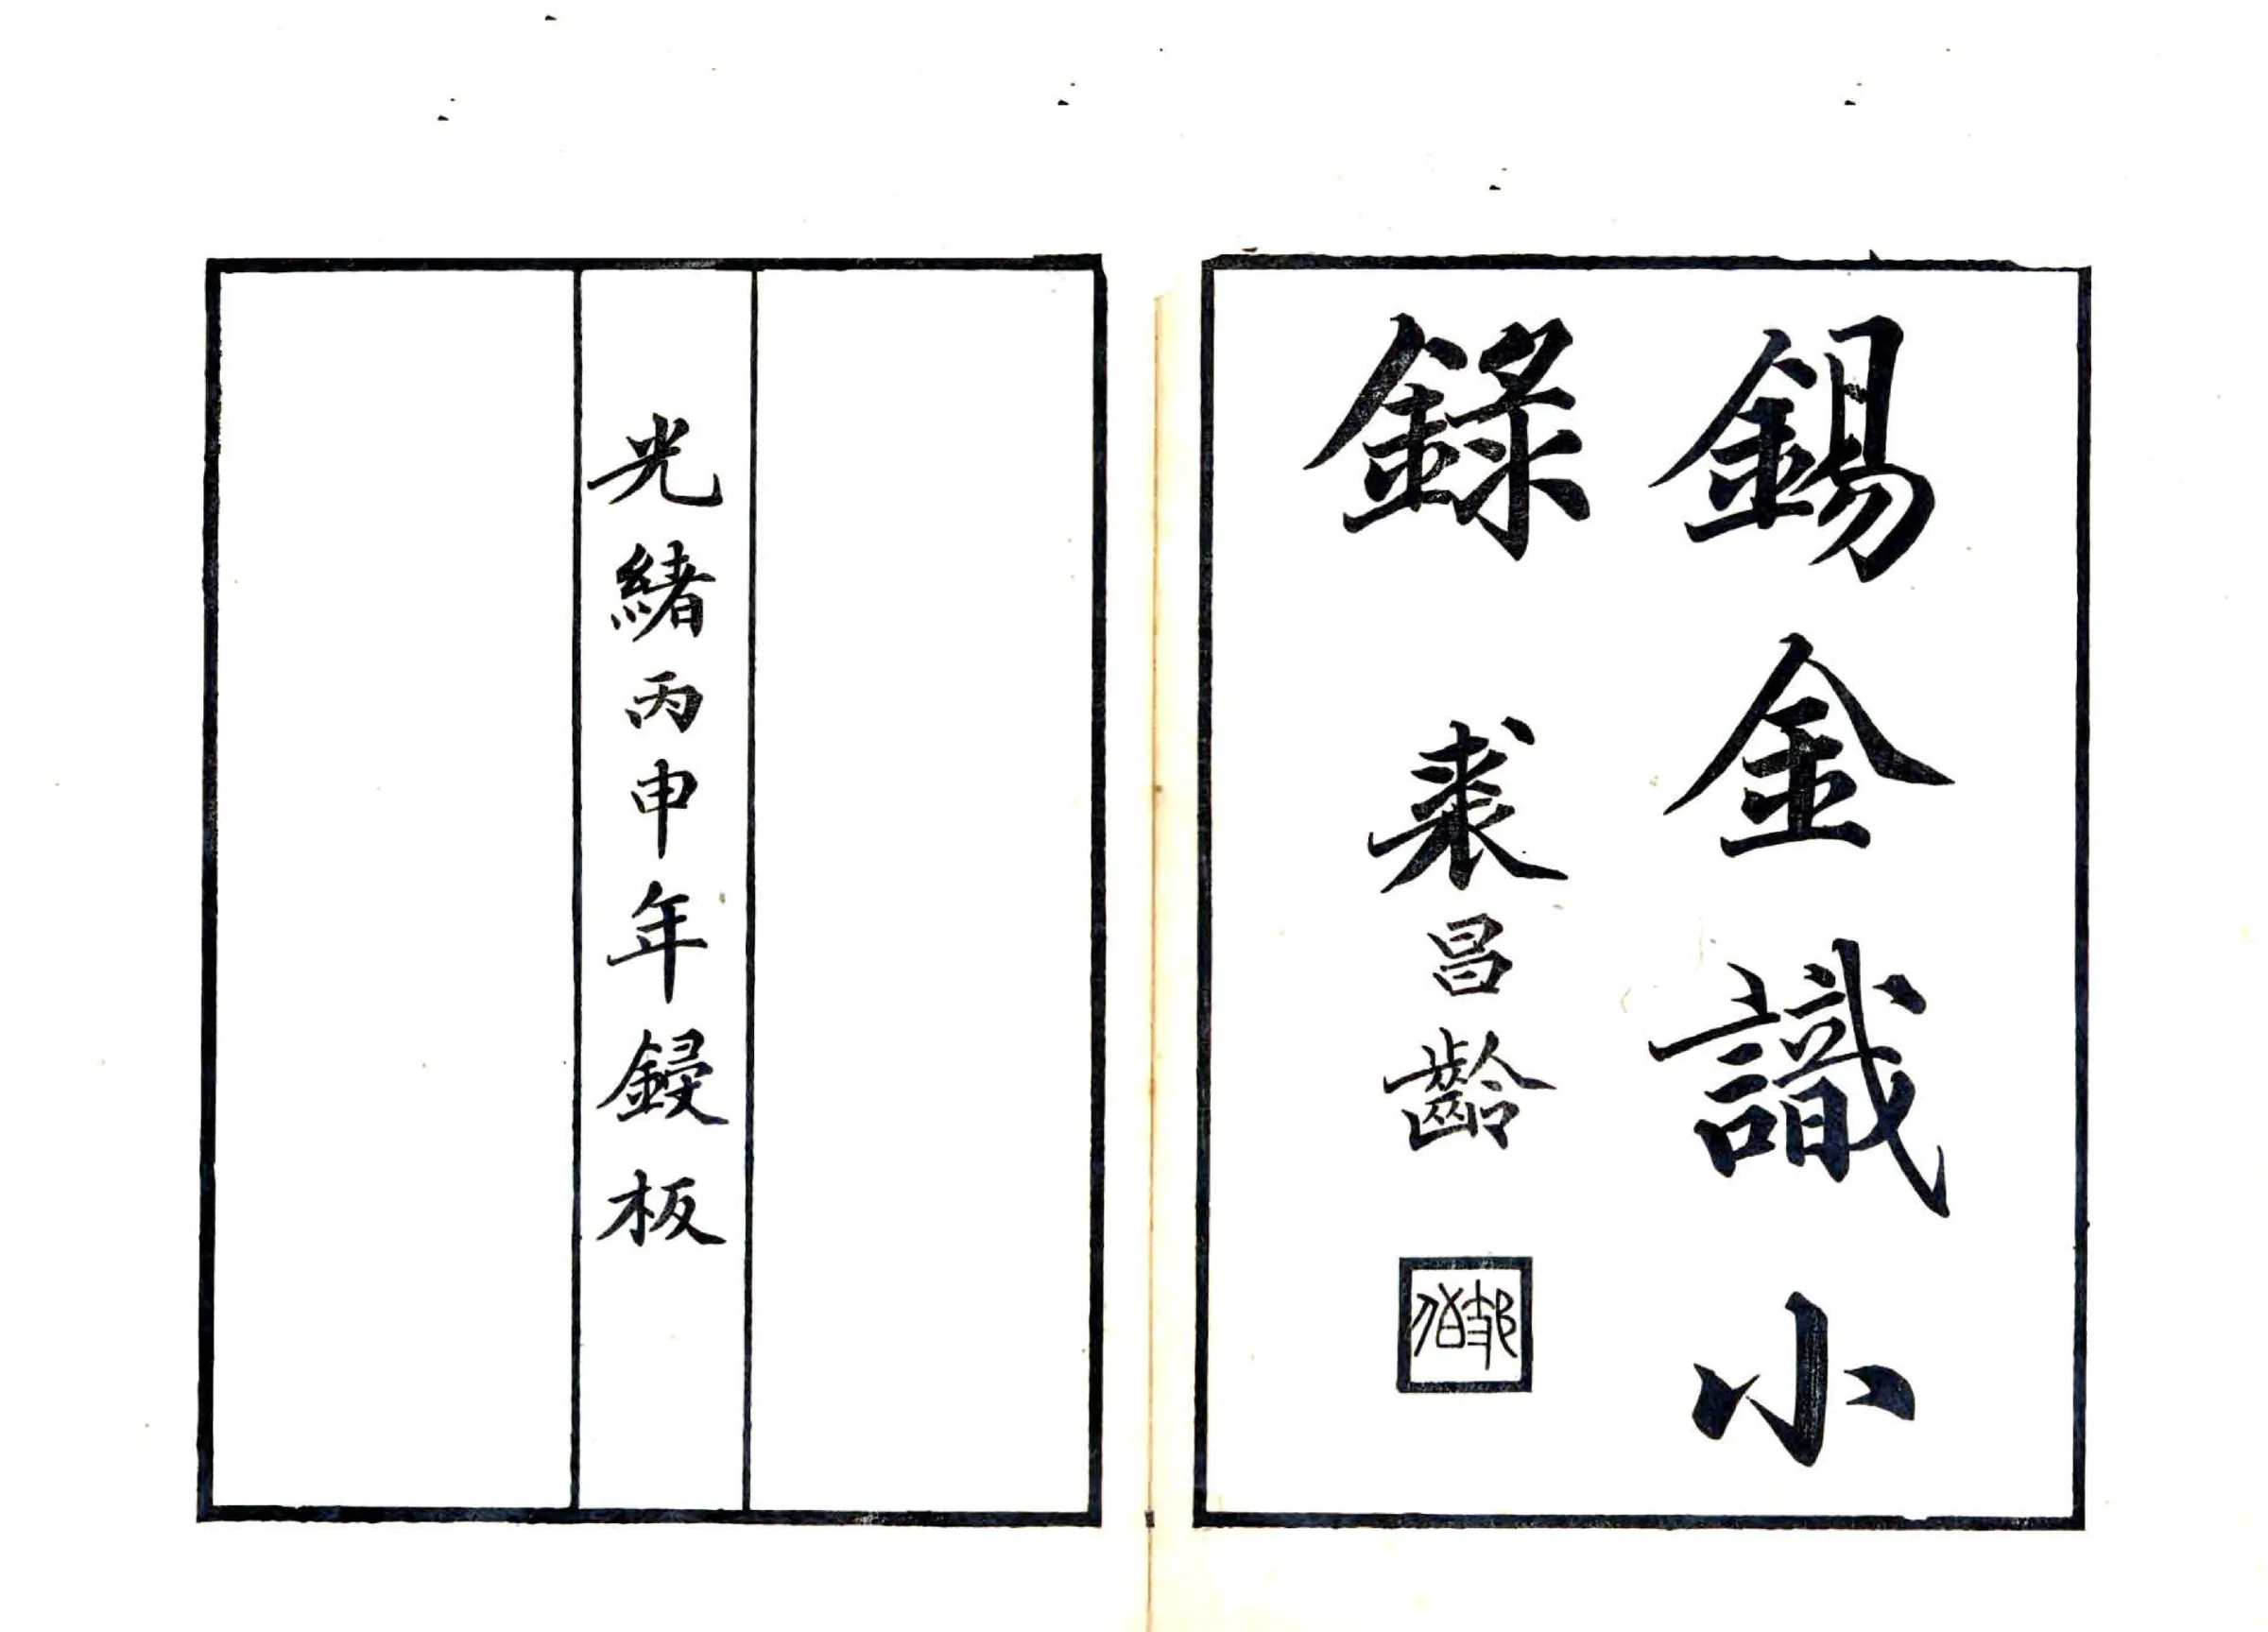 錫金識小
錄 裘昌齡
光緒丙申年鋟板